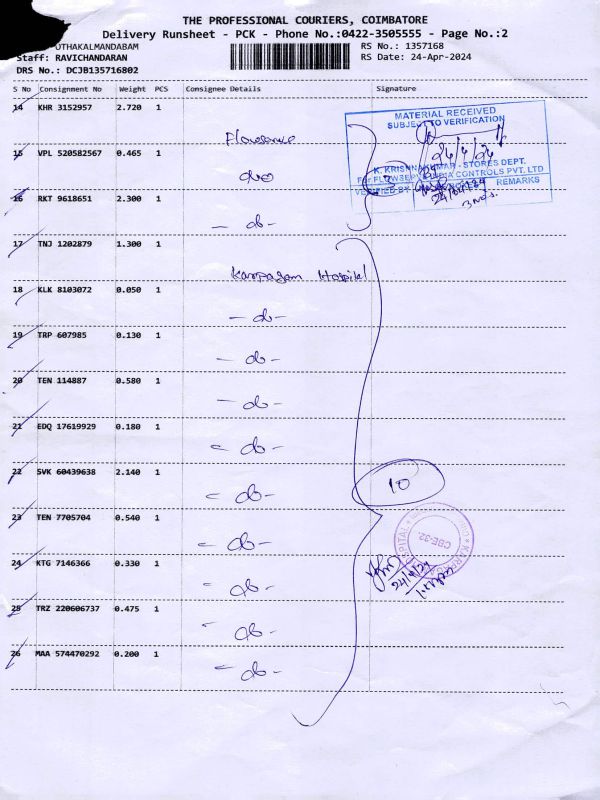 THE PROFESSIONAL COURIERS, COIMBATORE
Delivery Runsheet - PCK - Phone No.:0422-3505555 - Page No.:2
OTHAKALMANDABAM
RS No.: 1357168
Staff: RAVICHANDARAN
RS Date: 24-Apr-2024
DRS No.: DCJB135716802
S No Consignment No Weight PCS Consignee Details Signature
14 KHR 3152957 2.720 1
MATERIAL RECEIVED
SUBJECT TO VERIFICATION
24/4/24
K. KRISHNAKUMAR - STORES DEPT.
CONTROLS PVT. LTD
VERIFIED BY REMARKS
24/04/24
3 Nos.
15 VPL 520582567 0.465 1
do
16 RKT 9618651 2.300 1
- do -
17 TNJ 1202879 1.300 1
Karpagam Hospital
18 KLK 8103072 0.050 1
- do -
19 TRP 607985 0.130 1
- do -
20 TEN 114887 0.580 1
- do -
21 EDQ 17619929 0.180 1
- do -
22 SVK 60439638 2.140 1
- do -
10
23 TEN 7705704 0.540 1
- do -
CBE-32.
24/4/24
24 KTG 7146366 0.330 1
- do -
25 TRZ 220606737 0.475 1
- do -
26 MAA 574470292 0.200 1
- do -